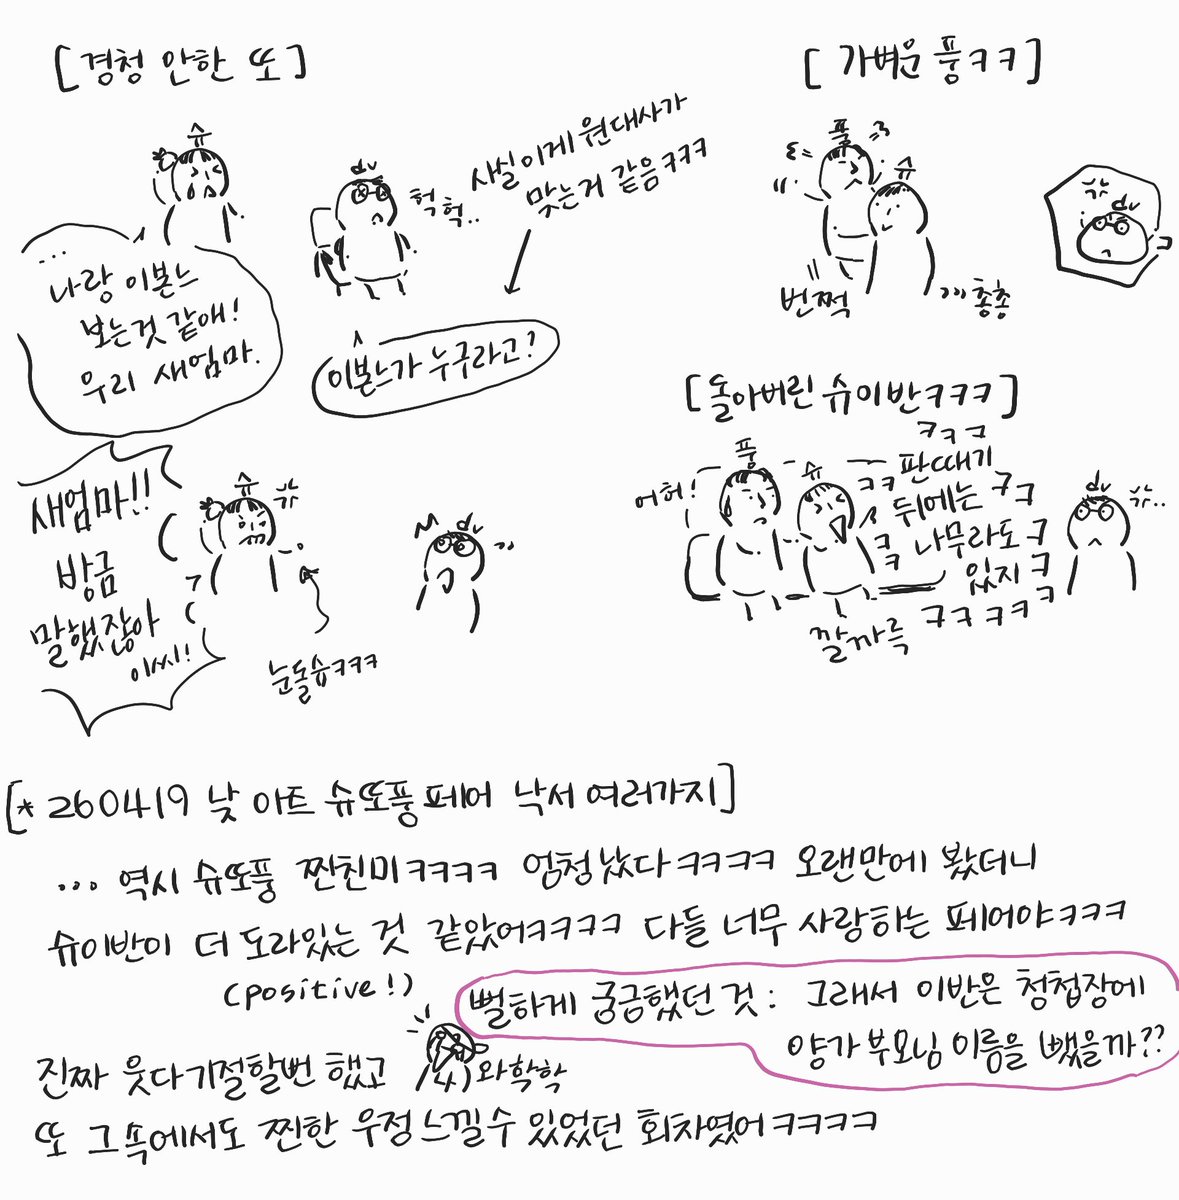 [경청 안한 또]
슈
또
헉헉..
사실이게 원대사가
맞는거 같음ㅋㅋㅋ
...
나랑 이본느
보는것 같애!
우리 새엄마.
이본느가 누구라고?
새엄마!!
방금
말했잖아
이씨!
슈
또
눈돌슈ㅋㅋㅋ
[가벼운 풍ㅋㅋ]
풍
슈
번쩍
총총
또
[돌아버린 슈이반ㅋㅋㅋ]
어허!
풍
슈
ㅋㅋㅋ
ㅋㅋ 판때기
뒤에는 ㅋㅋ
ㅋㅋ 나무라도 ㅋ
있지 ㅋ
ㅋㅋㅋㅋㅋ
깔깔륵
또
[* 260419 낮 아트 슈또풍페어 낙서 여러가지]
... 역시 슈또풍 찐친미ㅋㅋㅋㅋ 엄청났다ㅋㅋㅋㅋ 오랜만에 봤더니
슈이반이 더 도라있는 것 같았어ㅋㅋㅋㅋ 다들 너무 사랑하는 페어야ㅋㅋㅋ
(positive!)
뻘하게 궁금했던 것: 그래서 이반은 청첩장에
양가 부모님 이름을 뺐을까??
진짜 웃다기절할번 했고
와학학
또 그속에서도 찐한 우정느낄수 있었던 회차였어ㅋㅋㅋㅋ